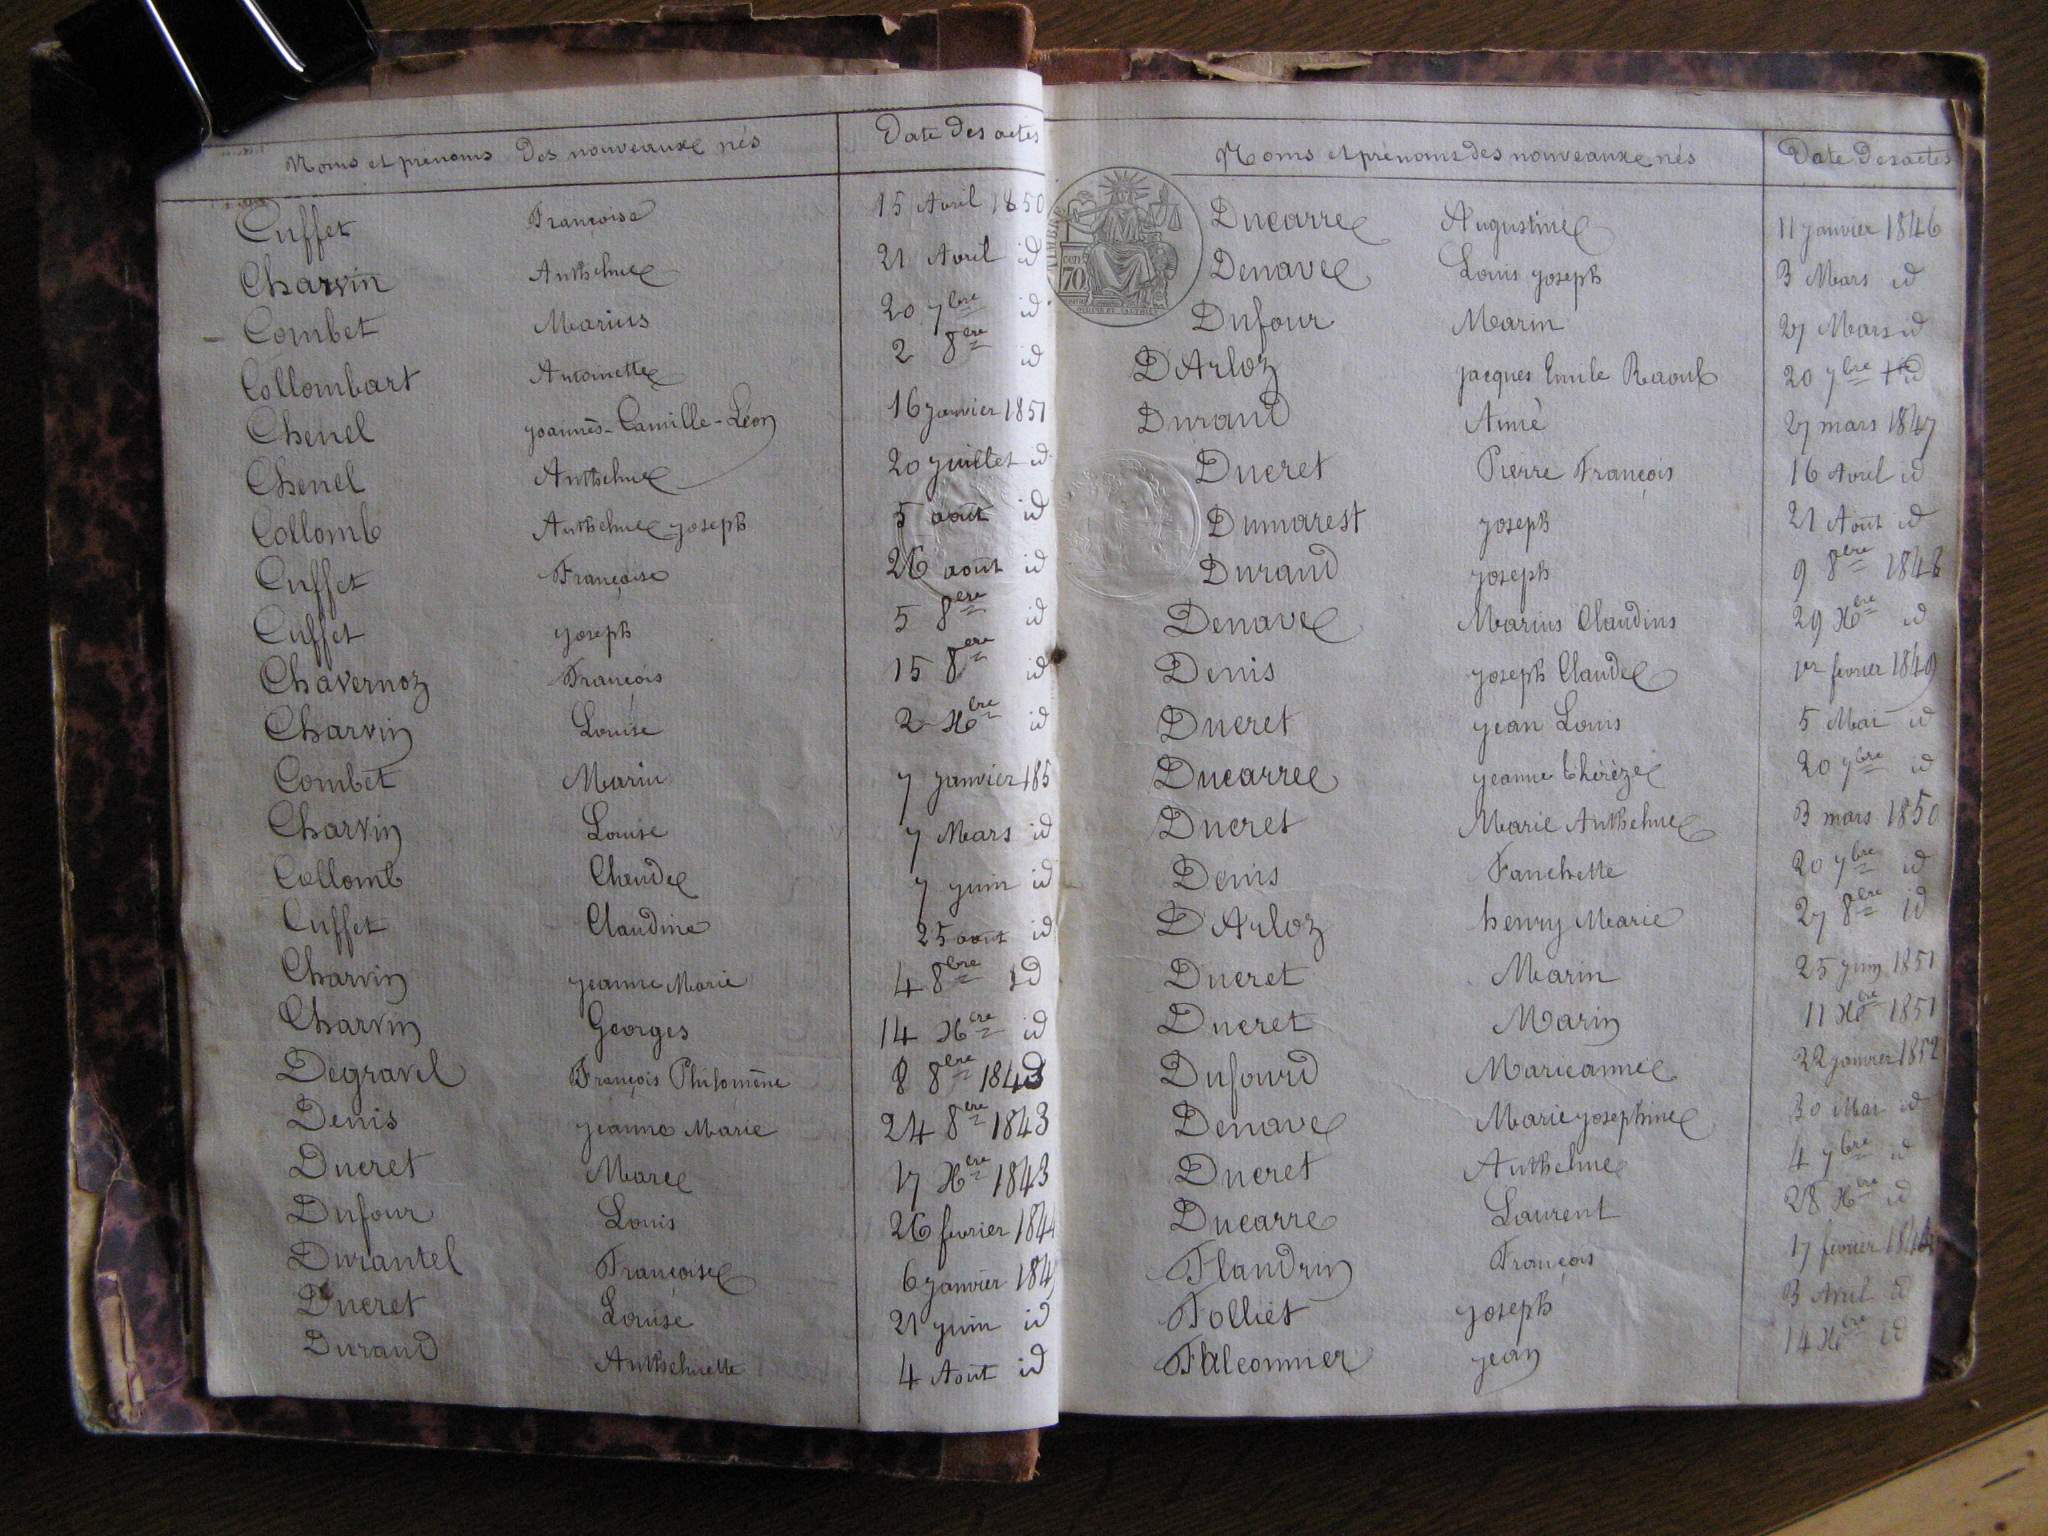 Noms et prénoms Des nouveaux nés Date des actes
Cuffet Françoise 15 Avril 1850
Charvin Anthelme 21 Avril id
Combet Marius 20 7bre id
Collombart Antoinette 2 8ere id
Chenel joannès-Camille-Léon 16 janvier 1851
Chenel Anthelme 20 juillet id
Collomb Anthelme joseph 5 août id
Cuffet Françoise 26 août id
Cuffet joseph 5 8ere id
Chavernoz François 15 8ere id
Charvin Louise 2 Xbre id
Combet Marin 7 janvier 185
Charvin Louise 7 Mars id
Collomb Claude 7 juin id
Cuffet Claudine 25 août id
Charvin jeanne Marie 4 8bre id
Charvin Georges 14 Xere id
Degravel François Philomène 8 8bre 1843
Denis jeanne Marie 24 8ere 1843
Ducret Marie 17 Xere 1843
Dufour Louis 26 fevrier 1844
Durantel Françoise 6 janvier 184
Ducret Louise 21 juin id
Durand Anthelmette 4 Août id
Noms et prénoms des nouveaux nés Date Des actes
TIMBRE
70
Ducarre Augustine 11 janvier 1846
Denave Louis joseph 3 Mars id
Dufour Marin 27 Mars id
DArloz jacques Emile Raoul 20 7bre id
Durand Aimé 27 mars 1847
Ducret Pierre François 16 Avril id
Dumarest joseph 21 Août id
Durand joseph 9 8bre 1848
Denave Marius Claudius 29 Xbre id
Denis joseph Claude 1er fevrier 1849
Ducret jean Louis 5 Mai id
Ducarre jeanne thérèze 20 7bre id
Ducret Marie Anthelme 3 mars 1850
Denis Fanchette 20 7bre id
DArloz henry Marie 27 8bre id
Ducret Marin 25 juin 1851
Ducret Marin 11 Xbre 1851
Dufourd Marieannie 22 janvier 1852
Denave Marie josephine 30 Mai id
Ducret Anthelme 4 7bre id
Ducarre Laurent 28 Xbre id
Flandrin François 17 fevrier 1844
Folliet joseph 3 Avril id
Falconnier jean 14 Xbre id